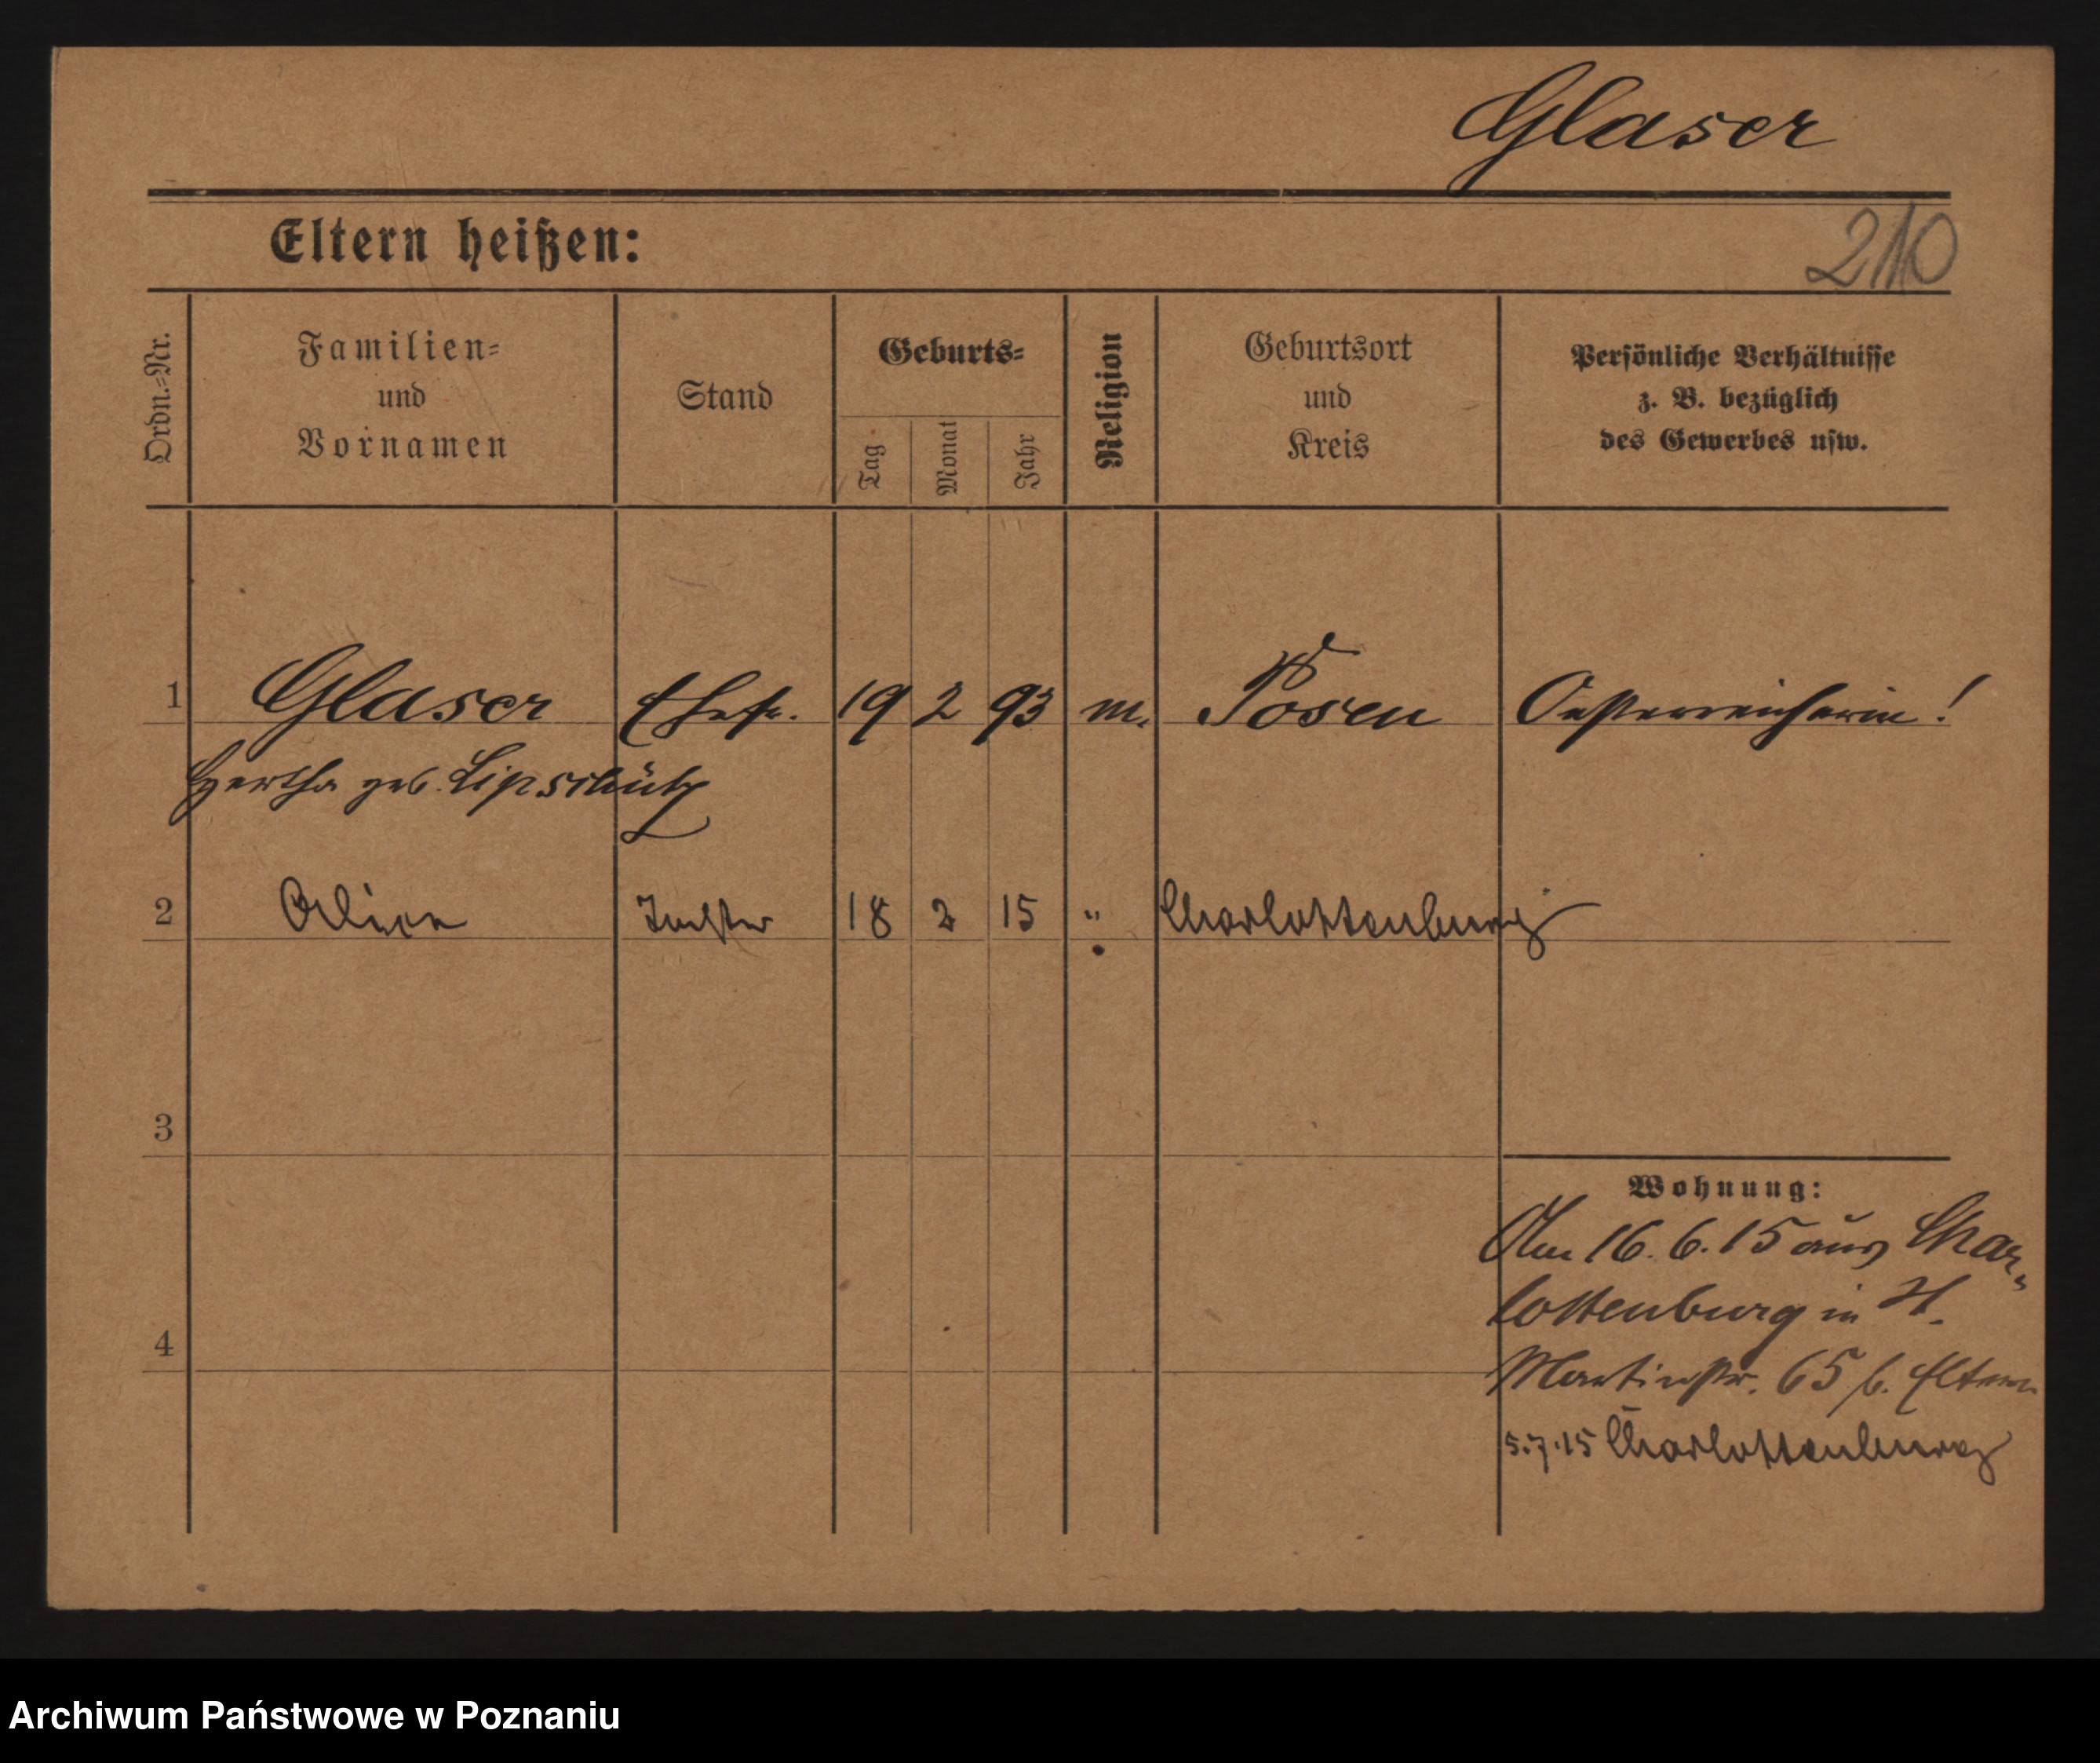 Glaser
Eltern heißen:
210
Ordn.=Nr.
Familien=
und
Vornamen
Stand
Geburts=
Tag
Monat
Jahr
Religion
Geburtsort
und
Kreis
Persönliche Verhältnisse
z. B. bezüglich
des Gewerbes usw.
1 Glaser Ehefr. 19 2 93 m. Posen Oesterreicherin!
Hertha geb. Lipschütz
2 Tochter 18 2 15 " Charlottenburg
3
4
Wohnung:
Am 16.6.15 aus Char=
lottenburg in H.
Martinstr. 65 b. Eltern
5.7.15 Charlottenburg
Archiwum Państwowe w Poznaniu